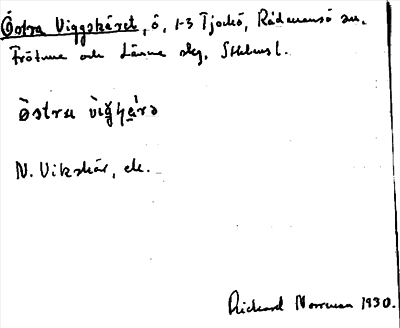 Östra Viggskäret, ö, 1-3 Tjockö, Rådmansö sn.
Frötuna och Länna skg, Sthlms l.
östra
N. Vikskär, ek.
Rickard Norrman 1930.